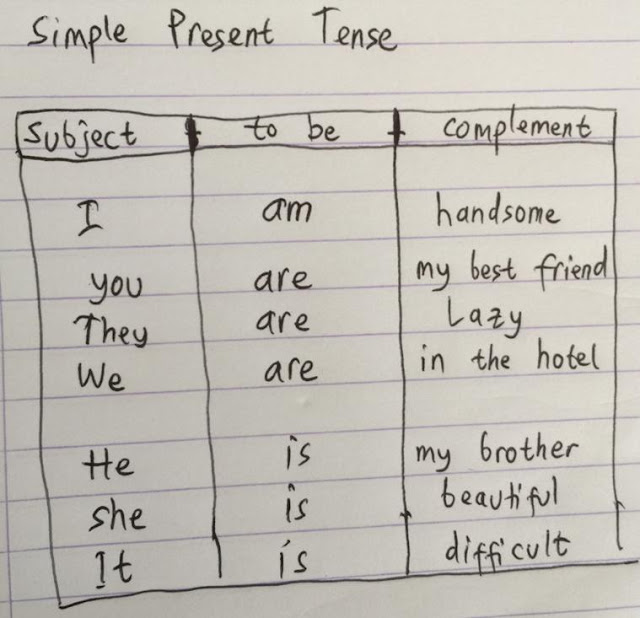 Simple Present Tense
Subject + to be + complement
I am handsome
you are my best friend
They are Lazy
We are in the hotel
He is my brother
she is beautiful
It is difficult